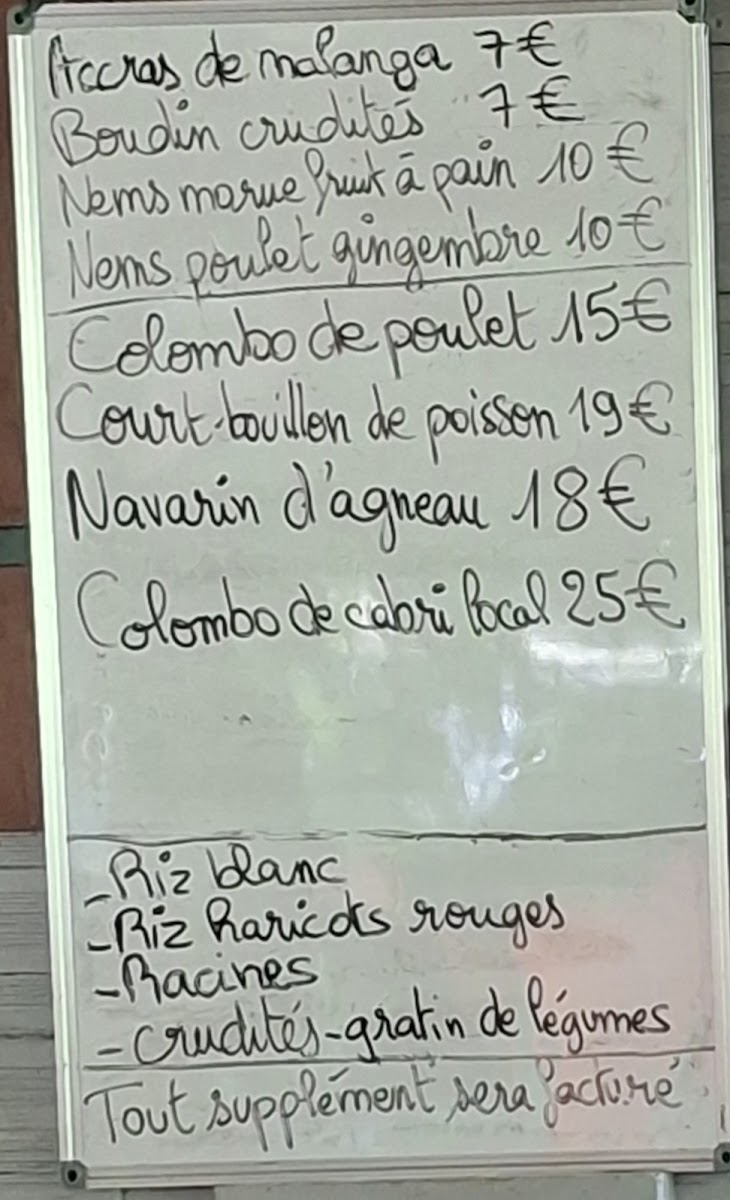 Accras de malanga 7€
Boudin crudités 7€
Nems morue fruit à pain 10€
Nems poulet gingembre 10€
Colombo de poulet 15€
Court-bouillon de poisson 19€
Navarin d'agneau 18€
Colombo de cabri local 25€
-Riz blanc
-Riz haricots rouges
-Racines
-crudités-gratin de légumes
Tout supplément sera facturé